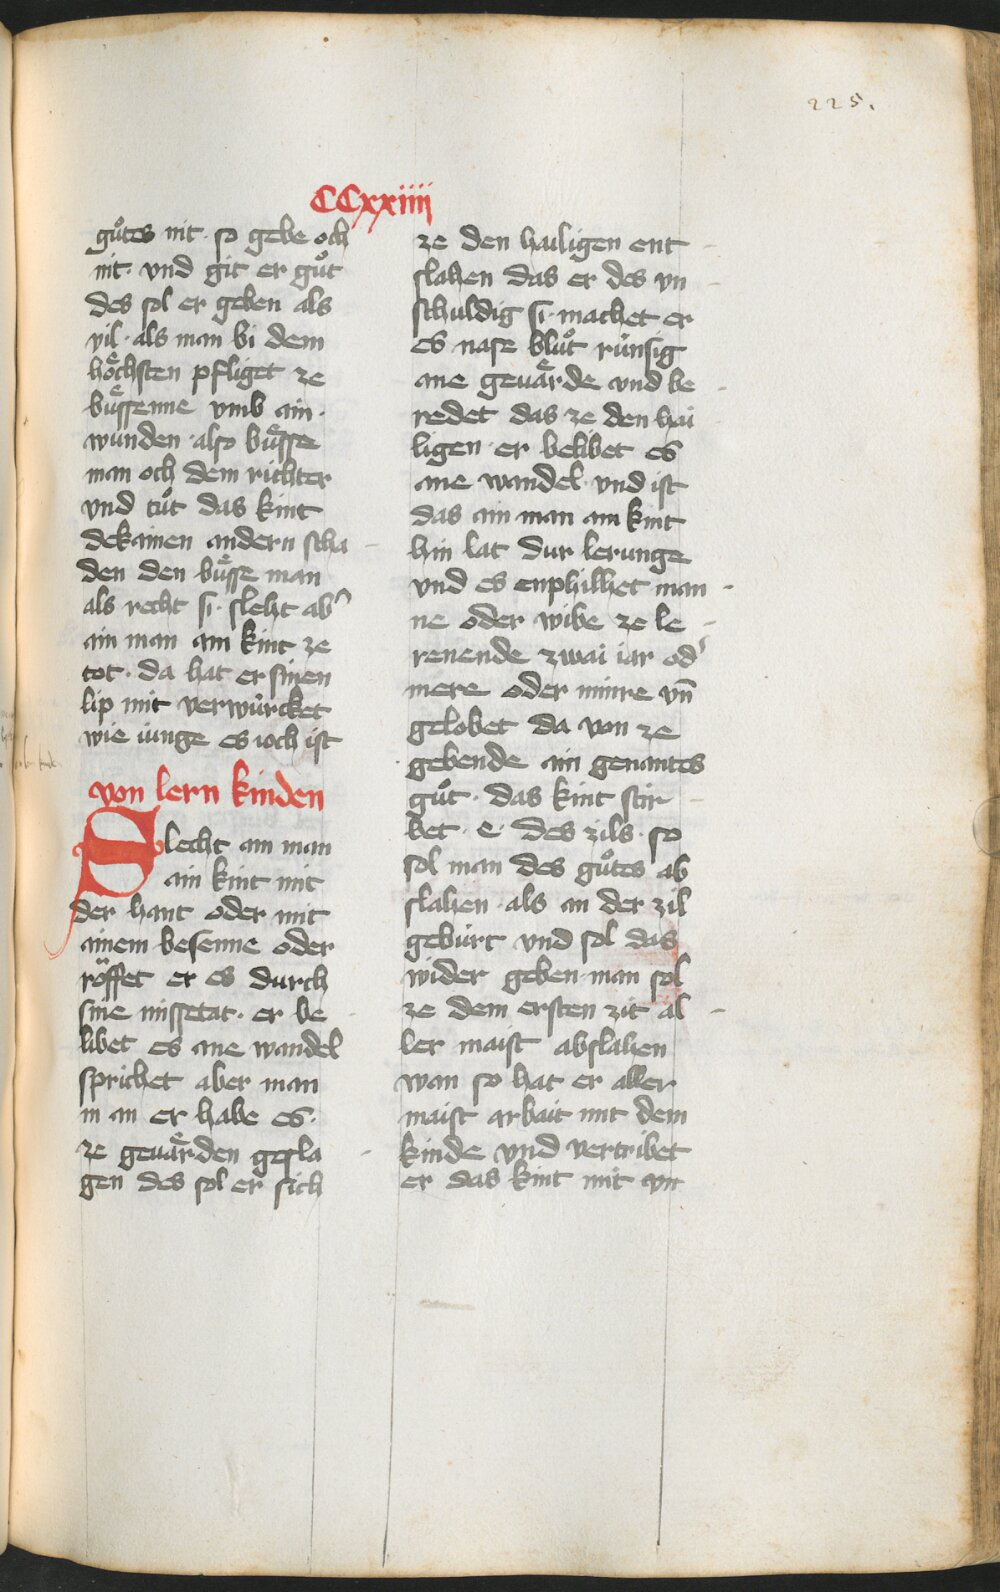 225.
CCxxiiii
guͦtes nit · so gebe och
nit · vnd git er guͦt
des sol er geben als
vil · als man bi dem
hoͤchsten pfliget ze
buͤssenne vmb ain ·
wunden · also buͤsse
man och dem richter
vnd tuͦt das kint
dekainen andern scha
den den buͤsse man
als recht si · sleht ab'
ain man ain kint ze
tot · da hat er sinen
lip mit verwürcket
wie iunge es ioch ist
von lern kinden
Slecht ain man
ain kint mit
der hant oder mit
ainem besenne oder
röffet er es durch
sine missetat · er be
libet es ane wandel
sprichet aber man
in an er habe es ·
ze geuaͤrden gesla
gen des sol er sich
ze den hailigen ent
slahen das er des vn
schuldig si · machet er
es nase bluͦt rünsig
ane geuaͤrde vnd be
redet das ze den hai
ligen · er belibet es
ane wandel · vnd ist
das ain man ain kint
hin lat dur lerunge
vnd es enphilhet man
ne oder wibe ze le
renende zwai iar od'
mere oder minre vn̄
gelobet da von ze
gebende ain genantes
guͦt · das kint stir
bet · e · des zils · so
sol man des guͦtes ab
slahen · als an der zil
gebürt vnd sol das
wider geben · man sol
ze dem ersten zit al
ler maist abslahen
wan so hat er aller
maist arbait mit dem
kinde vnd vertribet
er das kint mit vn